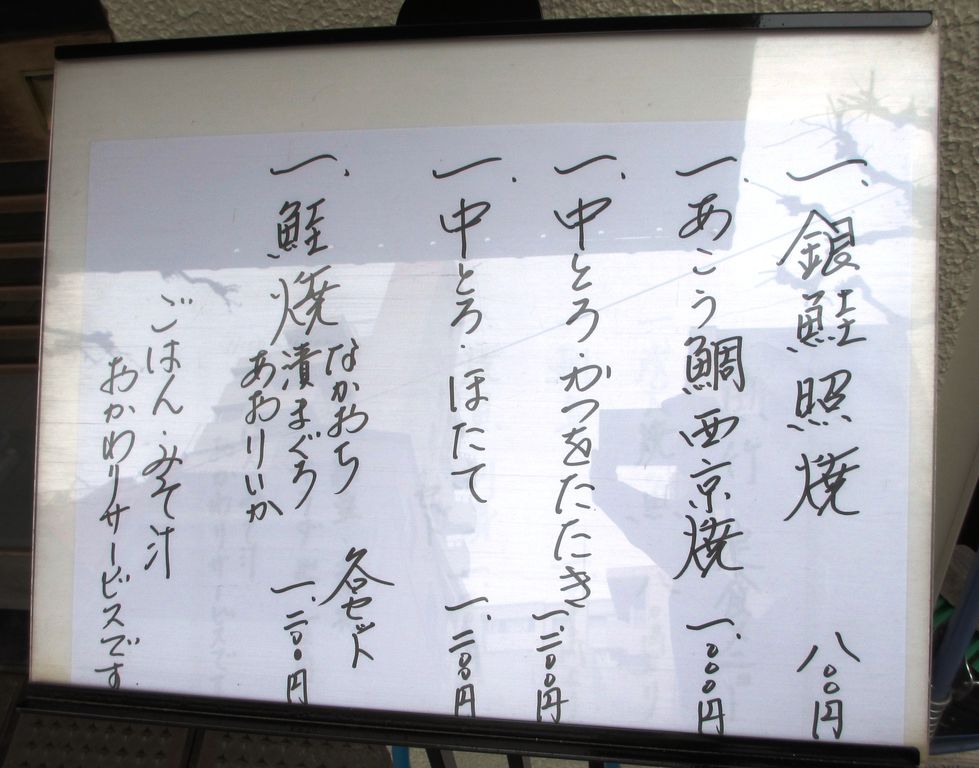 一、銀鮭照焼 八〇〇円
一、あこう鯛西京焼 一、〇〇〇円
一、中とろ・かつをたたき 一、二〇〇円
一、中とろ・ほたて 一、二〇〇円
一、鮭焼 なかおち 各セット
漬まぐろ 一、二〇〇円
あおりいか
ごはん・みそ汁
おかわりサービスです